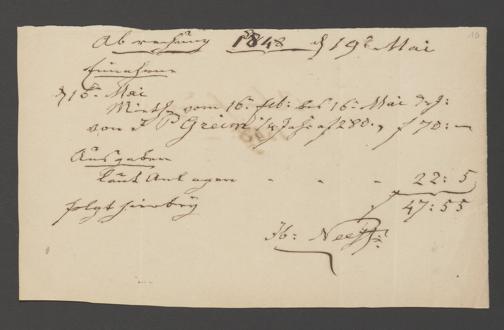 Abrechnung 1848 d 19t Mai
Einnahme
d 16t Mai
Mieth vom 16. feb: bis 16. Mai d: J:
von J P Greim 1/4 Jahr af 280., f 70: —
Ausgaben
laut Anlagen " " " 22: 5
folgt hierbey f 47: 55